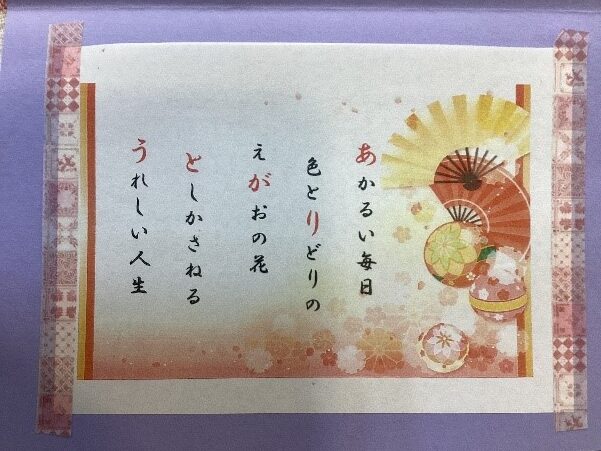 あかるい毎日
色とりどりの
えがおの花
としかさねる
うれしい人生